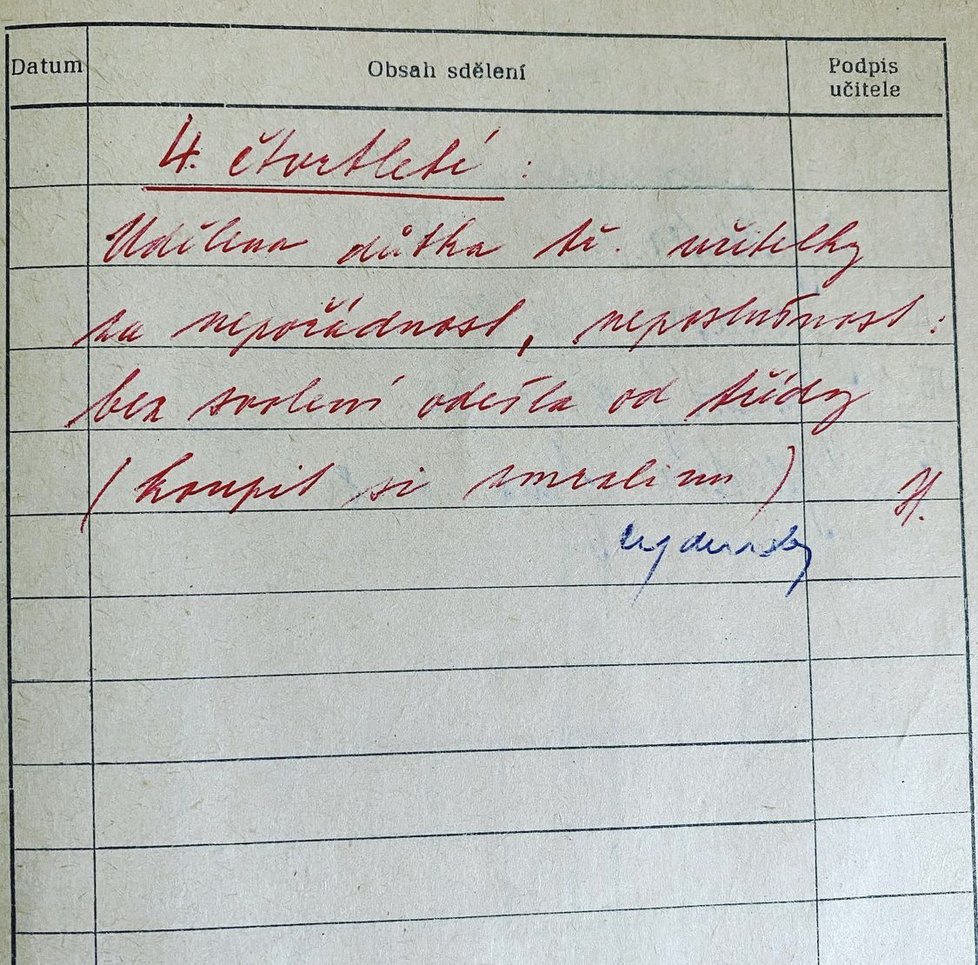 Datum
Obsah sdělení
Podpis
učitele
4. čtvrtletí :
Udělena důtka tř. učitelky
za nepořádnost, neposlušnost :
bez svolení odešla od třídy
(koupit si zmrzlinu)
H.